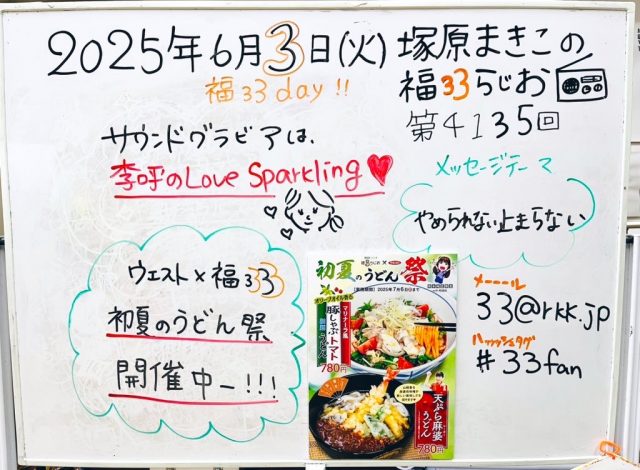 2025年6月3日(火) 塚原まきこの
福33day!!
福33らじお
第4135回
サウンドグラビアは、
李呼のLove Sparkling
メッセージテーマ
やめられない止まらない
ウエスト×福333
初夏のうどん祭
開催中ー!!!
初夏のうどん祭
オリーブオイル香る
マリナーラ風
豚しゃぶトマト
うどん
780円
天ぷら麻婆
うどん
780円
メーール
33@rkk.jp
ハッシュタグ
#33fan